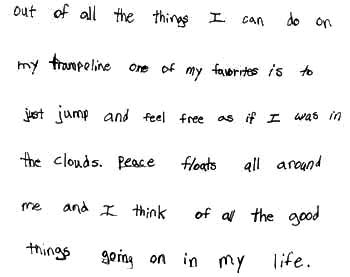 out of all the things I can do on
my trampoline one of my favorites is to
just jump and feel free as if I was in
the clouds. Peace floats all around
me and I think of all the good
things going on in my life.